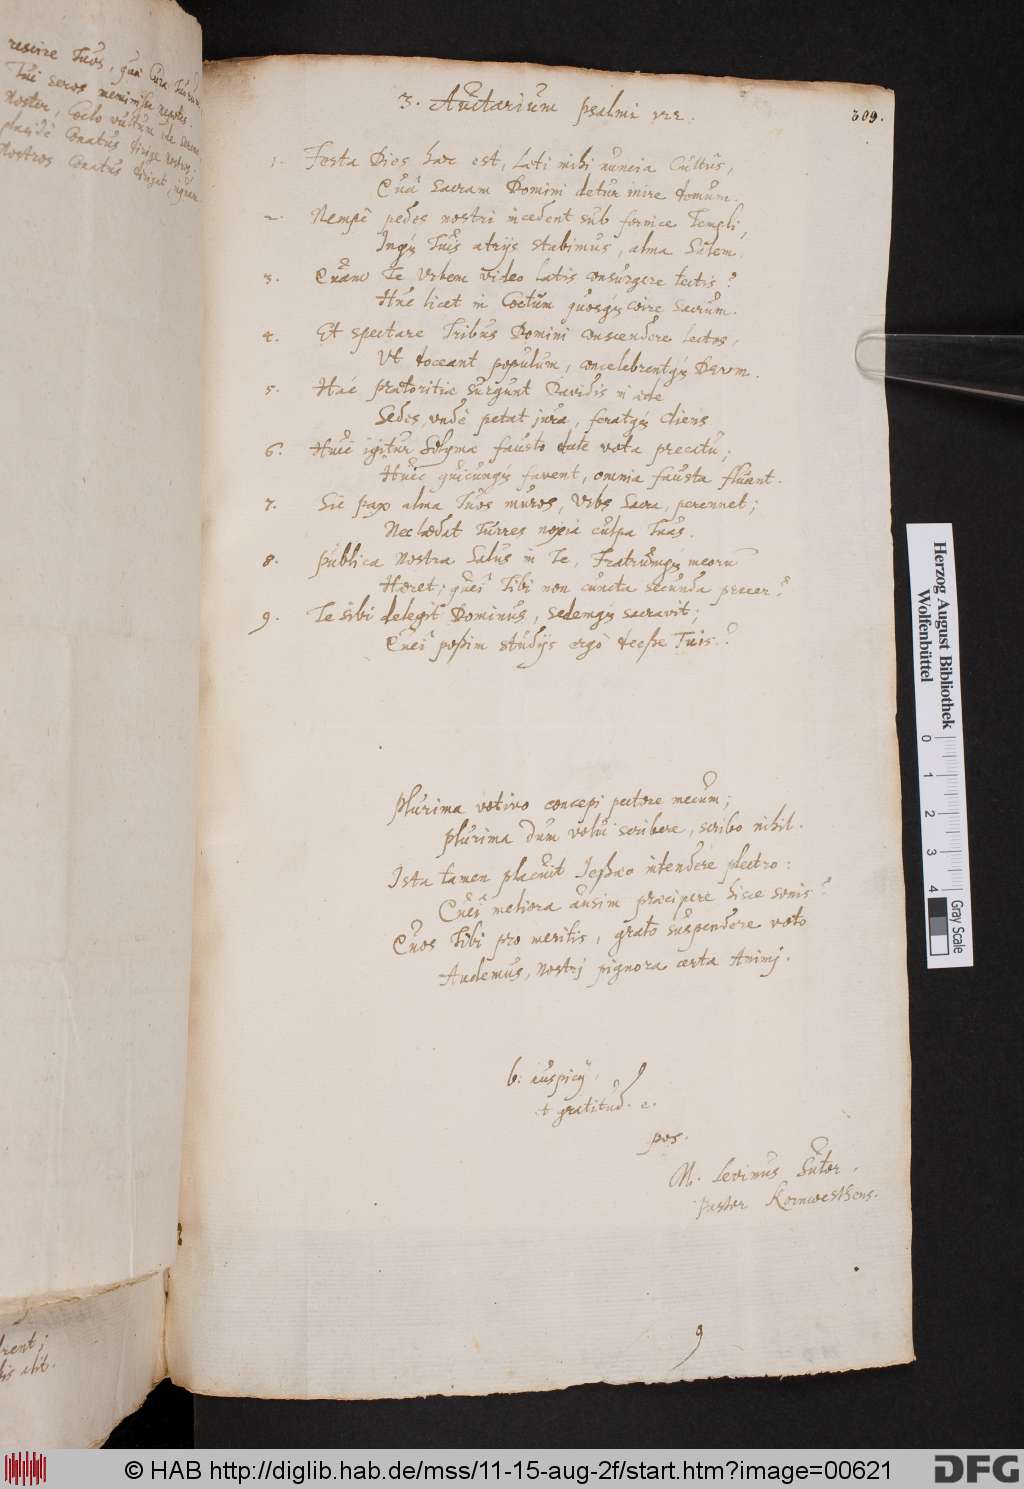 rescire Tuos, quâ Cura Tuorum
Tui seros meminisse nepotes.
Noster, Coelo vultum
placidè Conatus dirige vestros.
Nostros Conatus diriget
309.
3. Auctarium psalmi 122.
1. Festa Dies haec est, laeti mihi nuncia Cultûs,
Quâ Sacram Domini detur inire domum.
2. Nempè pedes nostri incedent sub fornice Templi,
Inq; Tuis atrijs stabimus, alma Salem.
3. Quàm Te Urbem video latis consurgere tectis?
Hûc licet in Coetum quosq; coire Sacrum.
4. Et spectare Tribus Domini conscendere lectas,
Ut doceant populum, concelebrentq; DEUM.
5. Hâc praetoritiae surgunt Davidis in aede
Sedes, undè petat jura, feratq; Cliens.
6. Huic igitur Solymae fausto date vota precatu;
Huic quicunq; favent, omnia fausta fluant.
7. Sic pax alma Tuos muros, Urbs Sacra, perennet;
Nec laedat Turres noxia culpa Tuas.
8. Publica nostra Salus in Te, Fratrumq; meorum
Haeret; quei Tibi non cuncta secunda precer?
9. Te sibi delegit Dominus, sedemq; sacravit;
Quei possim studijs ergò deesse Tuis?
Plurima votivo concepi pectore mecum;
Plurima dum volui scribere, scribo nihil.
Ista tamen placuit Jessaeo intendere plectro:
Quei meliora ausim praecipere hisce sonis?
Quos Tibi pro meritis, grato suspendere voto
Audemus, nostrj pignora certa Animj.
b: auspicij
et gratitud. e.
pos.
M. Levinus Sutor,
Pastor Kornwesthens.
9
drent;
alit.
Herzog August Bibliothek
Wolfenbüttel
0 1 2 3 4
Gray Scale
© HAB http://diglib.hab.de/mss/11-15-aug-2f/start.htm?image=00621
DFG